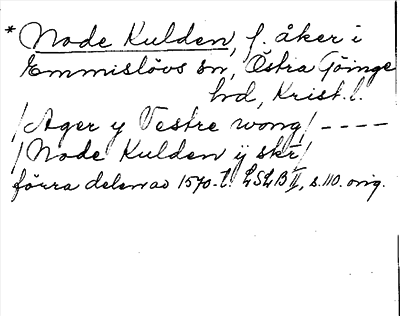 * Node Kulden, f. åker i
Emmislövs sn, Östra Göinge
hd, Krist. l.
/Ager y Vestre wong/ ----
/Node Kulden ÿ skr/
förra delen av 1570-t. LSLB II, s. 110. orig.